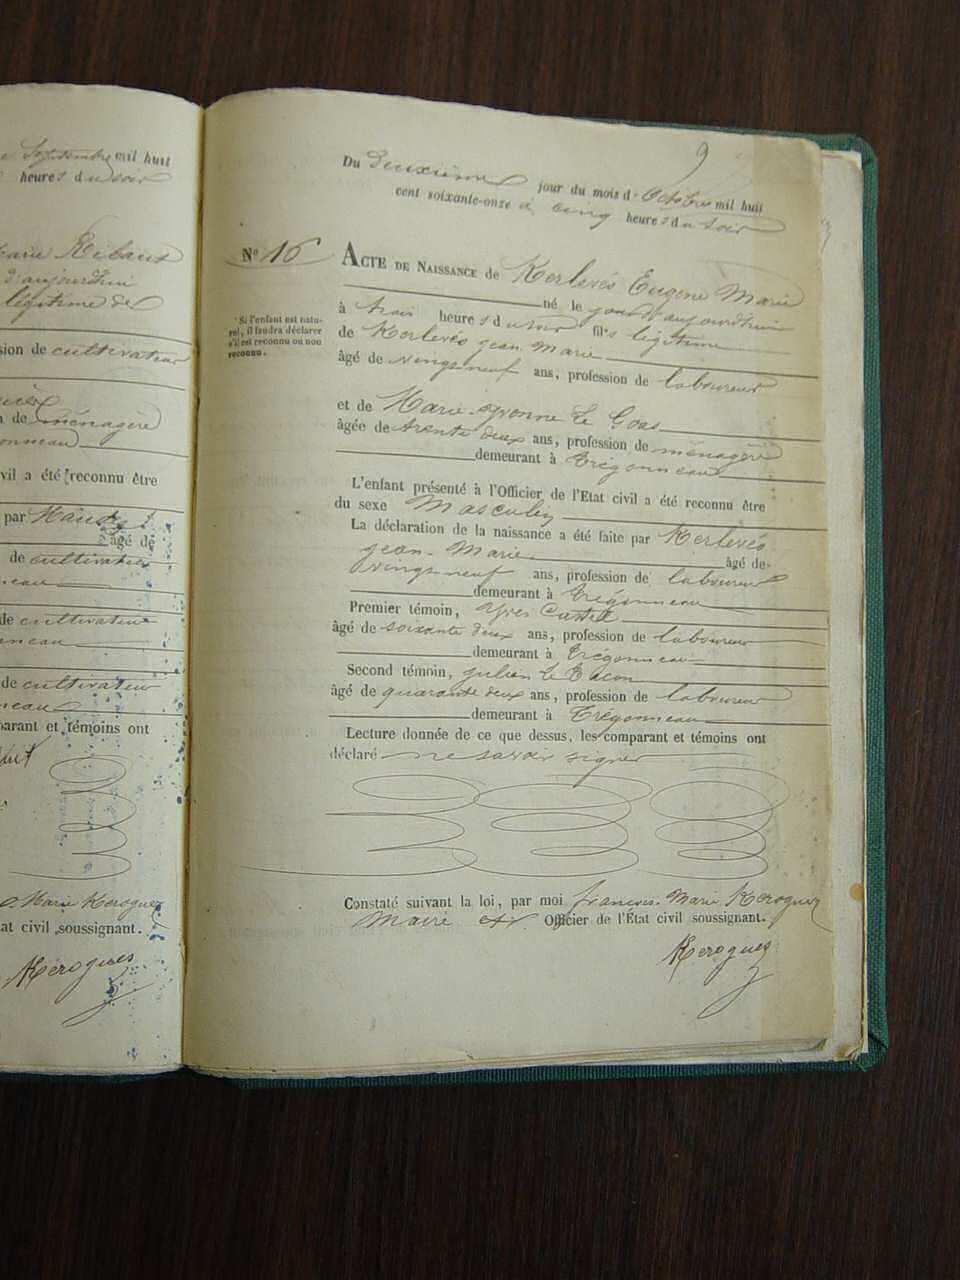 Septembre mil huit
heures du soir
Marie Ribaut
d'aujourd'hui
légitime de
sion de cultivateur
n de ménagère
onneau
vil a été reconnu être
par
âgé de
de cultivateur
neau
de cultivateur
nneau
de cultivateur
neau
parant et témoins ont
Marie Keroguez
at civil soussignant.
Keroguez
9
Du deuxième jour du mois d'Octobre mil huit
cent soixante-onze à cinq heures du soir
N° 16
ACTE DE NAISSANCE de Kerlevés Eugène Marie
né le jour d'aujourd'hui
à trois heures du soir fils légitime
* Si l'enfant est natu-
rel, il faudra déclarer
s'il est reconnu ou non
reconnu.
de Kerlevés jean Marie
âgé de vingt-neuf ans, profession de laboureur
et de Marie-yvonne Le Goas
âgée de trente deux ans, profession de ménagère
demeurant à Trégonneau
L'enfant présenté à l'Officier de l'Etat civil a été reconnu être
du sexe Masculin
La déclaration de la naissance a été faite par Kerlevés
jean-Marie âgé de
vingt-neuf ans, profession de laboureur
demeurant à Trégonneau
Premier témoin, yves
âgé de soixante deux ans, profession de laboureur
demeurant à Trégonneau
Second témoin, julien Le
âgé de quarante deux ans, profession de laboureur
demeurant à Trégonneau
Lecture donnée de ce que dessus, les comparant et témoins ont
déclaré ne savoir signer
Constaté suivant la loi, par moi françois Marie Keroguez
Maire Officier de l'État civil soussignant.
Keroguez